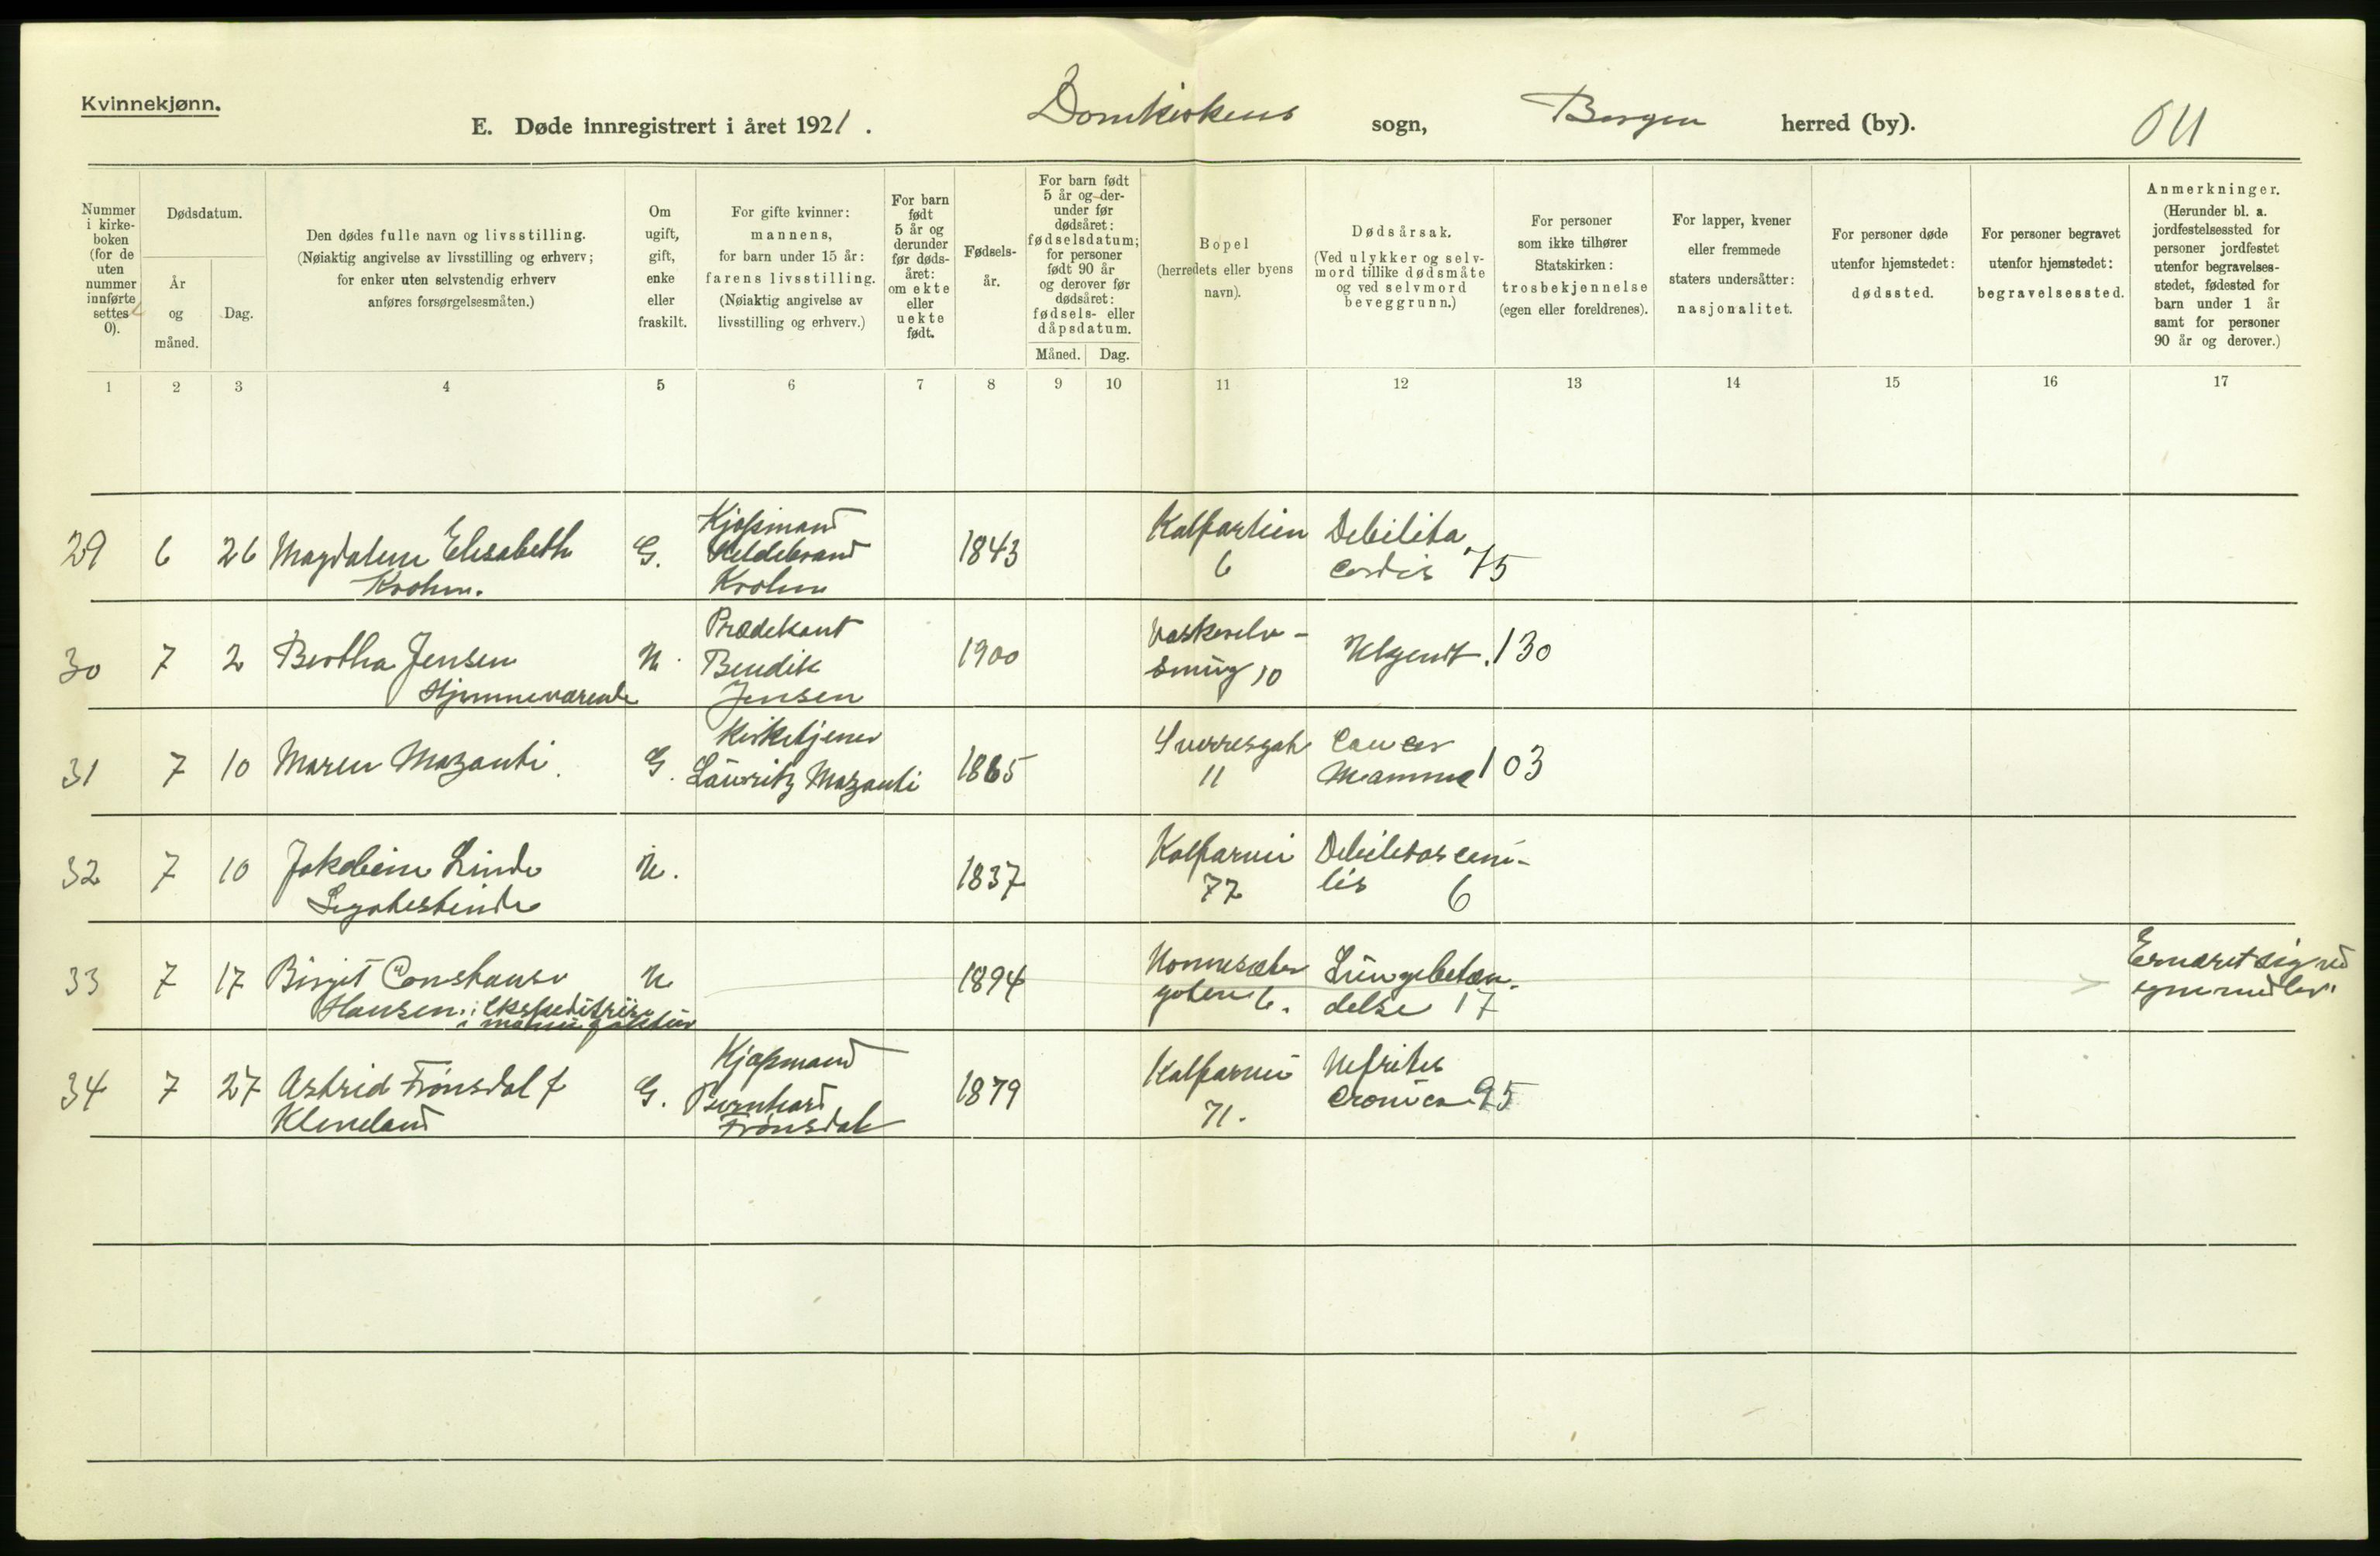 Kvinnekjønn.
E. Døde innregistrert i året 1921. Domkirkens sogn, Bergen herred (by).
Nummer i kirkeboken (for de uten nummer innførte settes 0).
Dødsdatum.
År og måned.
Dag.
Den dødes fulle navn og livsstilling.
(Nøiaktig angivelse av livsstilling og erhverv;
for enker uten selvstendig erhverv
anføres forsørgelsesmåten.)
Om ugift, gift, enke eller fraskilt.
For gifte kvinner:
mannens,
for barn under 15 år:
farens livsstilling.
(Nøiaktig angivelse av
livsstilling og erhverv.)
For barn født 5 år og derunder før dødsåret: om ekte eller uekte født.
Fødselsår.
For barn født 5 år og derunder før dødsåret: fødselsdatum; for personer født 90 år og derover før dødsåret: fødsels- eller dåpsdatum.
Måned. Dag.
Bopel
(herredets eller byens
navn).
Dødsårsak.
(Ved ulykker og selvmord tillike dødsmåte
og ved selvmord
beveggrunn.)
For personer
som ikke tilhører
Statskirken:
trosbekjennelse
(egen eller foreldrenes).
For lapper, kvener
eller fremmede
staters undersåtter:
nasjonalitet.
For personer døde
utenfor hjemstedet:
dødssted.
For personer begravet
utenfor hjemstedet:
begravelsessted.
Anmerkninger.
(Herunder bl. a.
jordfestelsessted for
personer jordfestet
utenfor begravelsesstedet, fødested for
barn under 1 år
samt for personer
90 år og derover.)
1 2 3 4 5 6 7 8 9 10 11 12 13 14 15 16 17
29 6 26 Magdalene Elisabeth Krohn. G. Kjøpmand Hildebrand Krohn 1843 Kalfarlien 6 Debilita cordis 75
30 7 2 Bertha Jensen Hjemmeværende U. Prædikant Bendik Jensen 1900 Vaskerelv-smug 10 Ukjendt. 130
31 7 10 Maren Mazanti. G. Kirketjener Lauritz Mazanti 1865 Sverresgate 11 Cancer Mamma 103
32 7 10 Jakobine Linde Legatestinde U. 1837 Kalfarvei 72 Debilitas seni-lis 6
33 7 17 Birgit Constanse Hansen. Ekspeditrise i manufaktur U 1894 Nonnesæter gaten 6. Lungebetæn-delse 17 Ernæret sig ved egne midler.
34 7 27 Astrid Frønsdal f Kleveland G. Kjøpmand Bernhard Frønsdal 1879 Kalfarvei 71. Nefrites Cronica 95